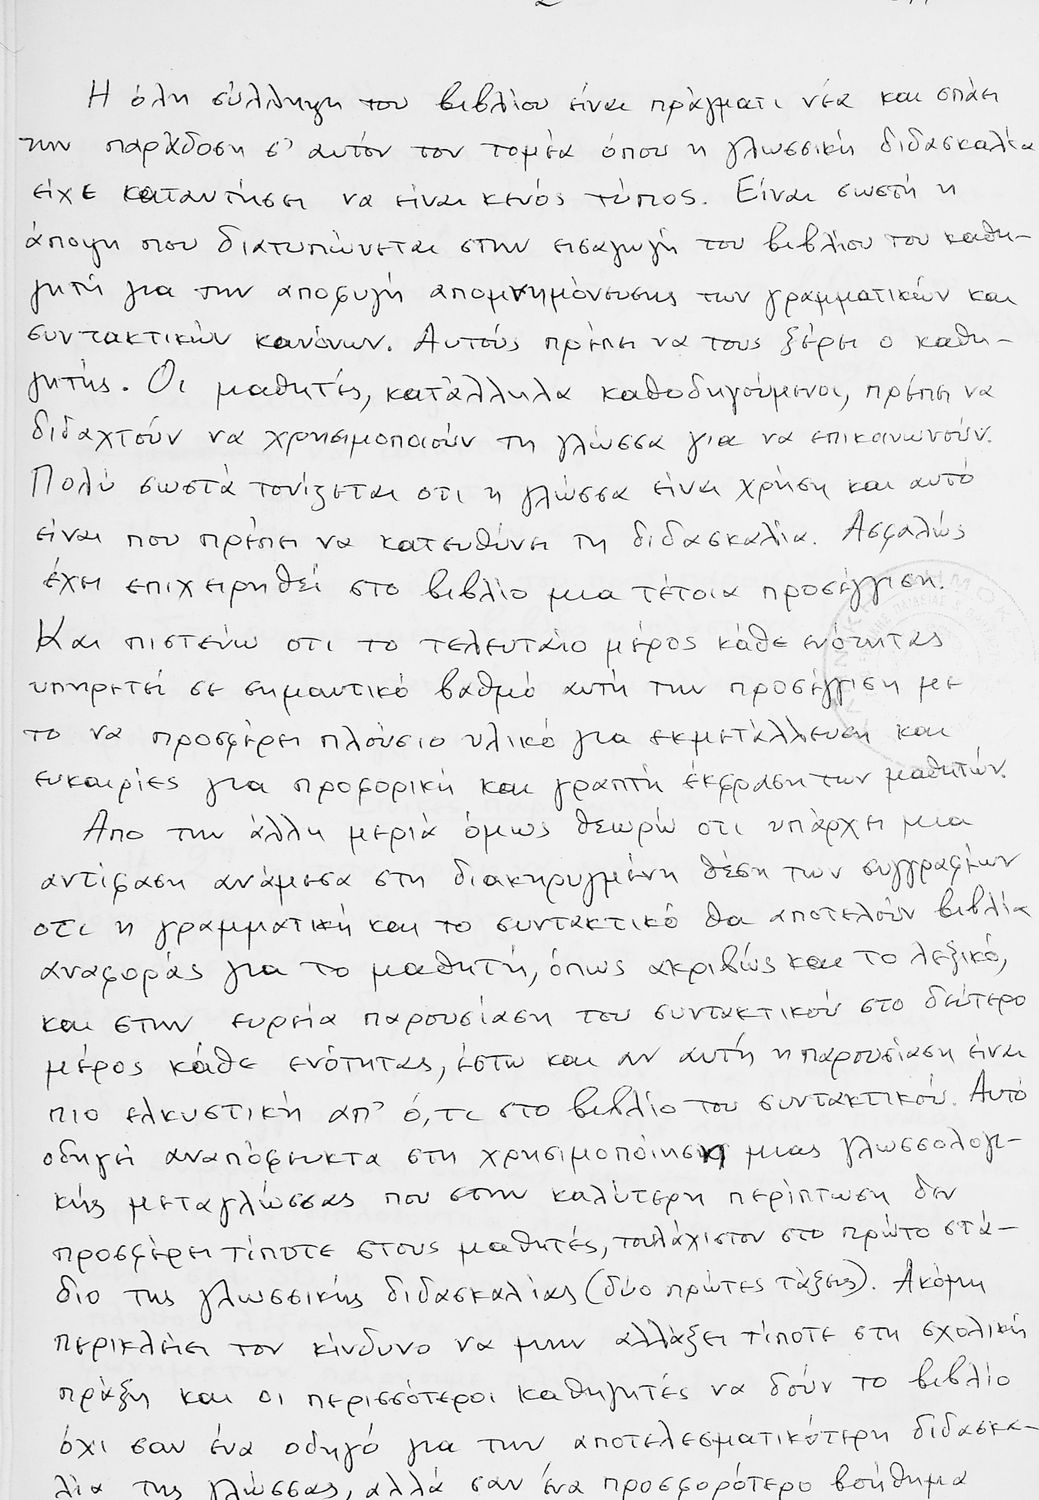 2
Η όλη σύλληψη του βιβλίου είναι πράγματι νέα και σπάει
την παράδοση σ' αυτόν τον τομέα όπου η γλωσσική διδασκαλία
είχε καταντήσει να είναι κενός τύπος. Είναι σωστή η
άποψη που διατυπώνεται στην εισαγωγή του βιβλίου του καθη-
γητή για την αποφυγή απομνημόνευσης των γραμματικών και
συντακτικών κανόνων. Αυτούς πρέπει να τους ξέρει ο καθη-
γητής. Οι μαθητές, κατάλληλα καθοδηγούμενοι, πρέπει να
διδαχτούν να χρησιμοποιούν τη γλώσσα για να επικοινωνούν.
Πολύ σωστά τονίζεται οτι η γλώσσα είναι χρήση και αυτό
είναι που πρέπει να κατευθύνει τη διδασκαλία. Ασφαλώς
έχει επιχειρηθεί στο βιβλίο μια τέτοια προσέγγιση.
Και πιστεύω οτι το τελευταίο μέρος κάθε ενότητας
υπηρετεί σε σημαντικό βαθμό αυτή την προσέγγιση με
το να προσφέρει πλούσιο υλικό για εκμετάλλευση και
ευκαιρίες για προφορική και γραπτή έκφραση των μαθητών.
Απο την άλλη μεριά όμως θεωρώ οτι υπάρχει μια
αντίφαση ανάμεσα στη διακηρυγμένη θέση των συγγραφέων
οτι η γραμματική και το συντακτικό θα αποτελούν βιβλία
αναφοράς για το μαθητή, όπως ακριβώς και το λεξικό,
και στην ευρεία παρουσίαση του συντακτικού στο δεύτερο
μέρος κάθε ενότητας, έστω και αν αυτή η παρουσίαση είναι
πιο ελκυστική απ' ό,τι στο βιβλίο του συντακτικού. Αυτό
οδηγεί αναπόφευκτα στη χρησιμοποίηση μιας γλωσσολογι-
κής μεταγλώσσας που στην καλύτερη περίπτωση δεν
προσφέρει τίποτε στους μαθητές, τουλάχιστον στο πρώτο στά-
διο της γλωσσικής διδασκαλίας (δύο πρώτες τάξεις). Ακόμη
περικλείει τον κίνδυνο να μην αλλάξει τίποτε στη σχολική
πράξη και οι περισσότεροι καθηγητές να δούν το βιβλίο
όχι σαν ένα οδηγό για την αποτελεσματικότερη διδασκα-
λία της γλώσσας, αλλά σαν ένα προσφορότερο βοήθημα